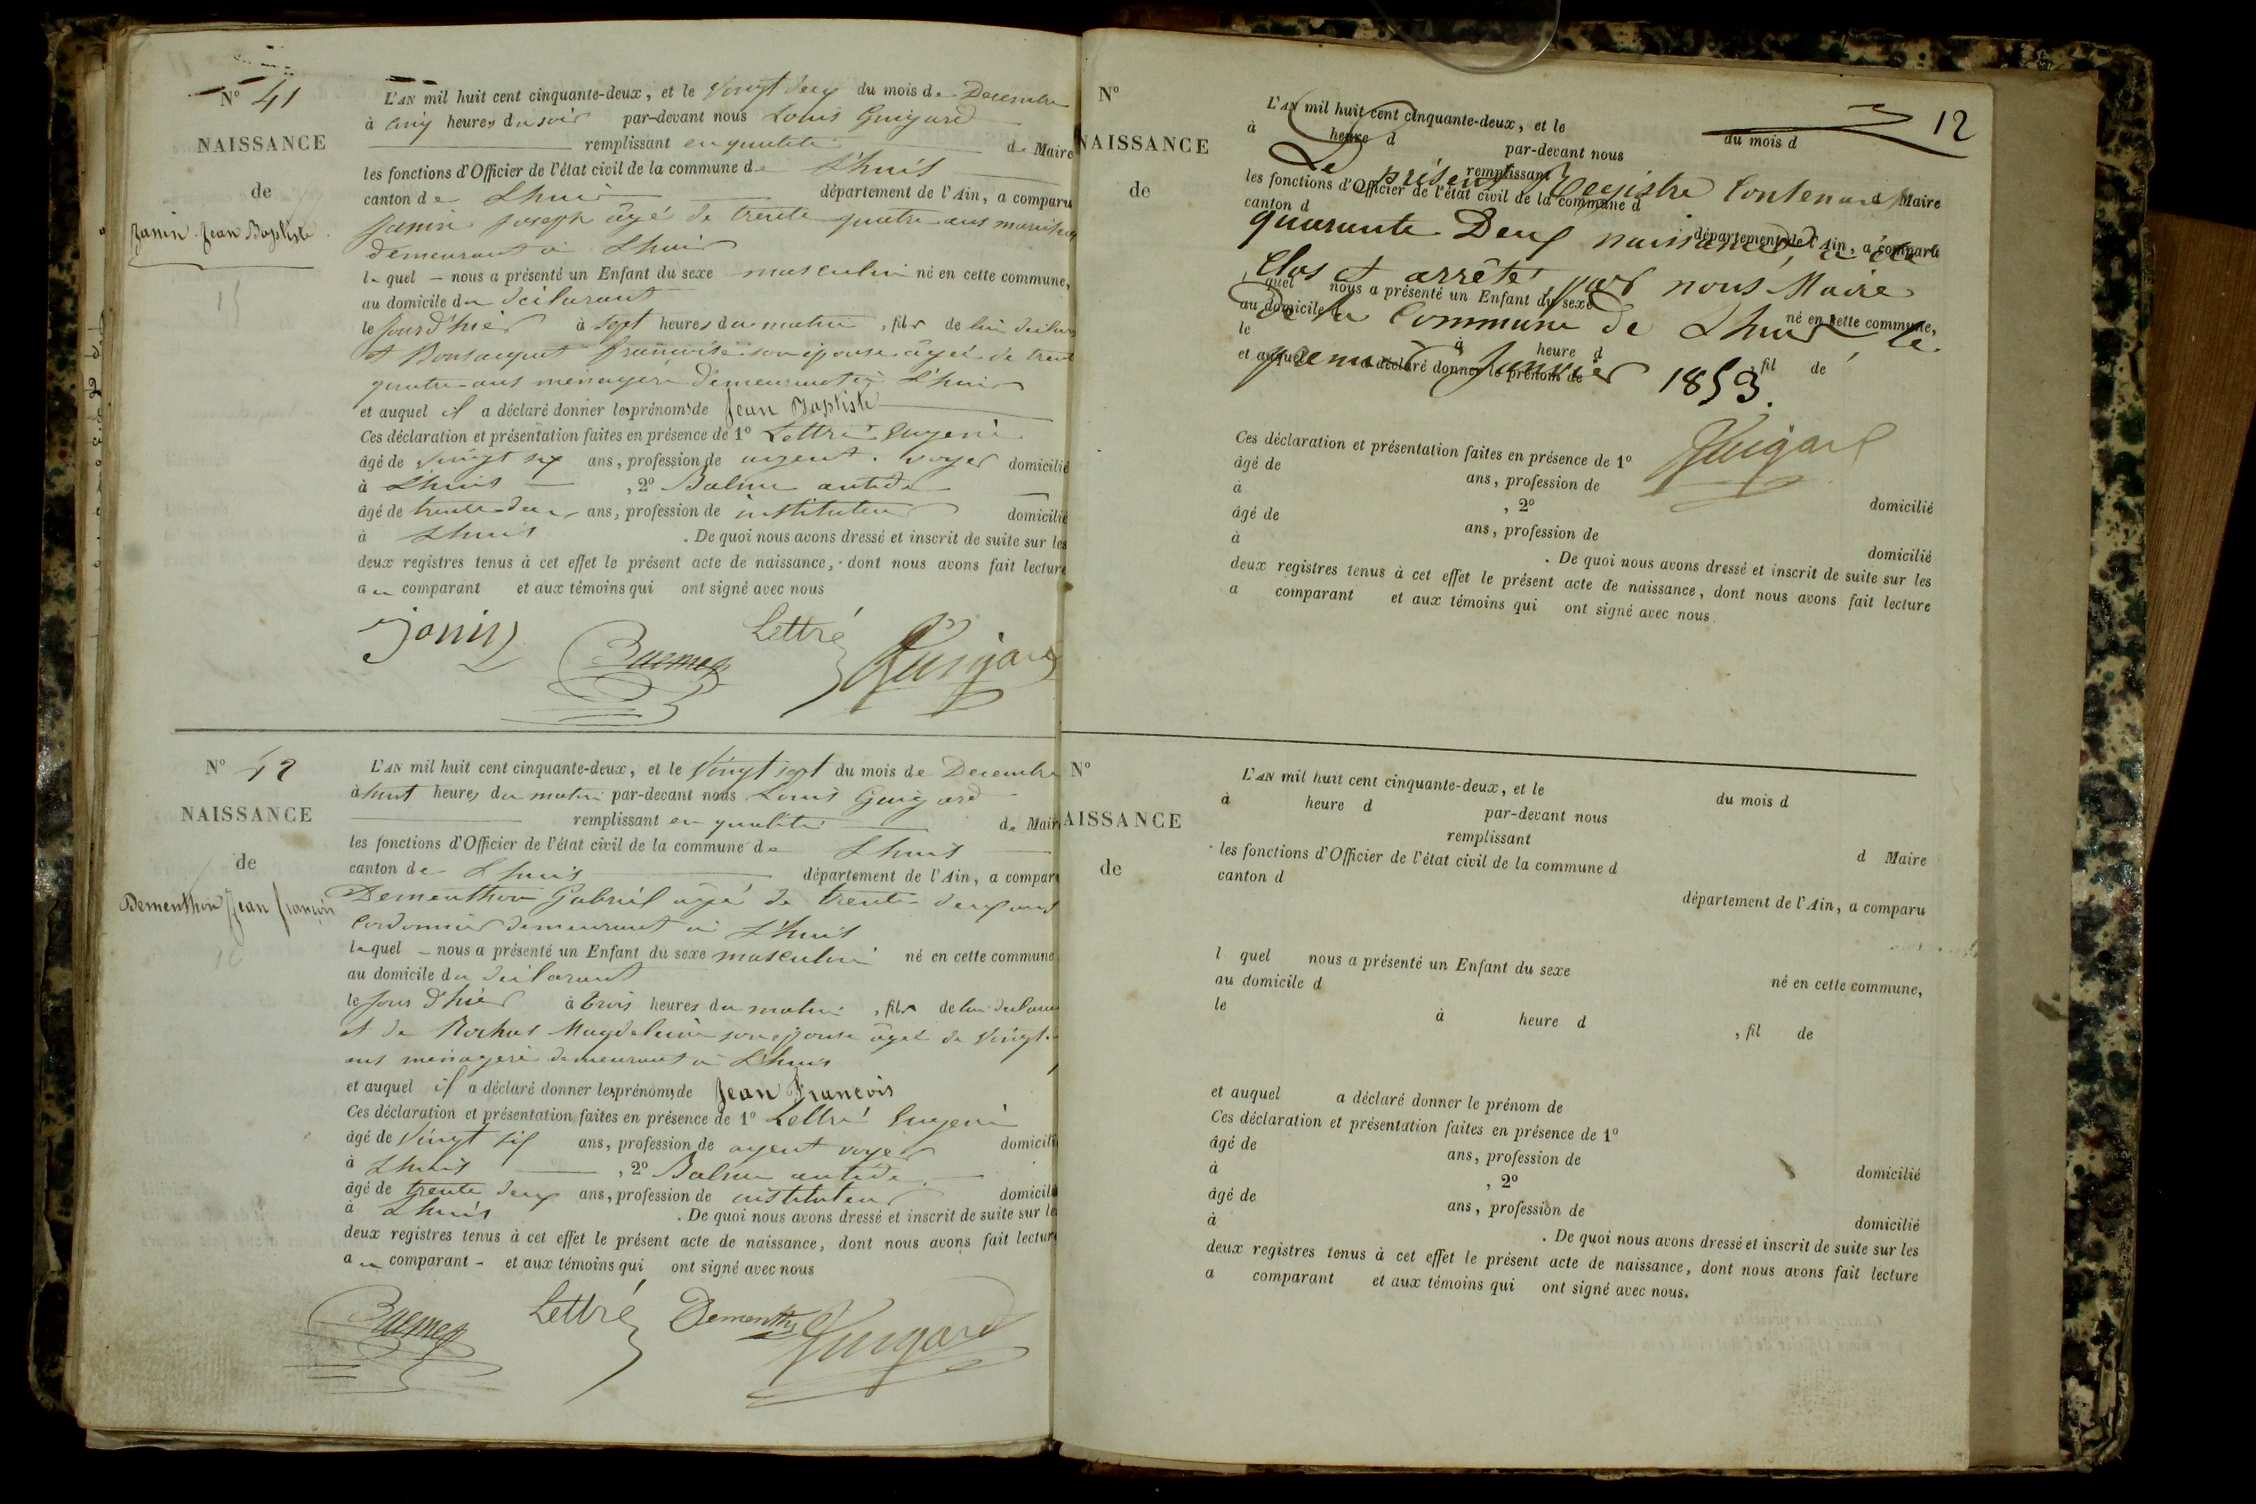 N° 41
NAISSANCE
de
Janin Jean Baptiste
L'AN mil huit cent cinquante-deux, et le vingt deux du mois de Decembre
à cinq heures du soir par-devant nous Louis Guigard
remplissant en qualité de Maire
les fonctions d'Officier de l'état civil de la commune de Lhuis
canton de Lhuis département de l'Ain, a comparu
Janin Joseph âgé de trente quatre ans
demeurant à Lhuis
lequel nous a présenté un Enfant du sexe masculin né en cette commune,
au domicile du déclarant
le jour d'hier à sept heures du matin, fils de lui
et Françoise son épouse âgée de
quatre ans ménagère demeurant à Lhuis
et auquel il a déclaré donner les prénoms de Jean Baptiste
Ces déclaration et présentation faites en présence de 1° Lettré Eugène
âgé de vingt six ans, profession de agent voyer domicilié
à Lhuis, 2° Balme antide
âgé de trente deux ans, profession de instituteur domicilié
à Lhuis. De quoi nous avons dressé et inscrit de suite sur les
deux registres tenus à cet effet le présent acte de naissance, dont nous avons fait lecture
au comparant et aux témoins qui ont signé avec nous
Janin Lettré Guigard
N° 42
NAISSANCE
de
Dementhon Jean françois
L'AN mil huit cent cinquante-deux, et le vingt sept du mois de Decembre
à huit heures du matin par-devant nous Louis Guigard
remplissant en qualité de Maire
les fonctions d'Officier de l'état civil de la commune de Lhuis
canton de Lhuis département de l'Ain, a comparu
Dementhon Gabriel âgé de trente deux ans
cordonnier demeurant à Lhuis
lequel nous a présenté un Enfant du sexe masculin né en cette commune
au domicile du déclarant
le jour d'hier à trois heures du matin, fils de lui
et de Rochas Magdeleine son épouse âgée de vingt
ans ménagère demeurant à Lhuis
et auquel il a déclaré donner les prénoms de Jean François
Ces déclaration et présentation faites en présence de 1° Lettré Eugène
âgé de vingt six ans, profession de agent voyer domicilié
à Lhuis, 2° Balme antide
âgé de trente deux ans, profession de instituteur domicilié
à Lhuis. De quoi nous avons dressé et inscrit de suite sur les
deux registres tenus à cet effet le présent acte de naissance, dont nous avons fait lecture
au comparant et aux témoins qui ont signé avec nous
Lettré Dementhon Guigard
12
N°
NAISSANCE
de
L'AN mil huit cent cinquante-deux, et le du mois d
à heure d par-devant nous
remplissant d Maire
les fonctions d'Officier de l'état civil de la commune d
canton d département de l'Ain, a comparu
l quel nous a présenté un Enfant du sexe né en cette commune,
au domicile d
le à heure d, fil de
et auquel a déclaré donner le prénom de
Le présent Registre Contenant
quarante Deux naissances, a été
clos et arrêté par nous Maire
De la Commune de Lhuis le
premier Janvier 1853.
Guigard
Ces déclaration et présentation faites en présence de 1°
âgé de ans, profession de domicilié
à, 2°
âgé de ans, profession de domicilié
à. De quoi nous avons dressé et inscrit de suite sur les
deux registres tenus à cet effet le présent acte de naissance, dont nous avons fait lecture
a comparant et aux témoins qui ont signé avec nous.
N°
AISSANCE
de
L'AN mil huit cent cinquante-deux, et le du mois d
à heure d par-devant nous
remplissant d Maire
les fonctions d'Officier de l'état civil de la commune d
canton d département de l'Ain, a comparu
l quel nous a présenté un Enfant du sexe né en cette commune,
au domicile d
le à heure d, fil de
et auquel a déclaré donner le prénom de
Ces déclaration et présentation faites en présence de 1°
âgé de ans, profession de domicilié
à, 2°
âgé de ans, profession de domicilié
à. De quoi nous avons dressé et inscrit de suite sur les
deux registres tenus à cet effet le présent acte de naissance, dont nous avons fait lecture
a comparant et aux témoins qui ont signé avec nous.